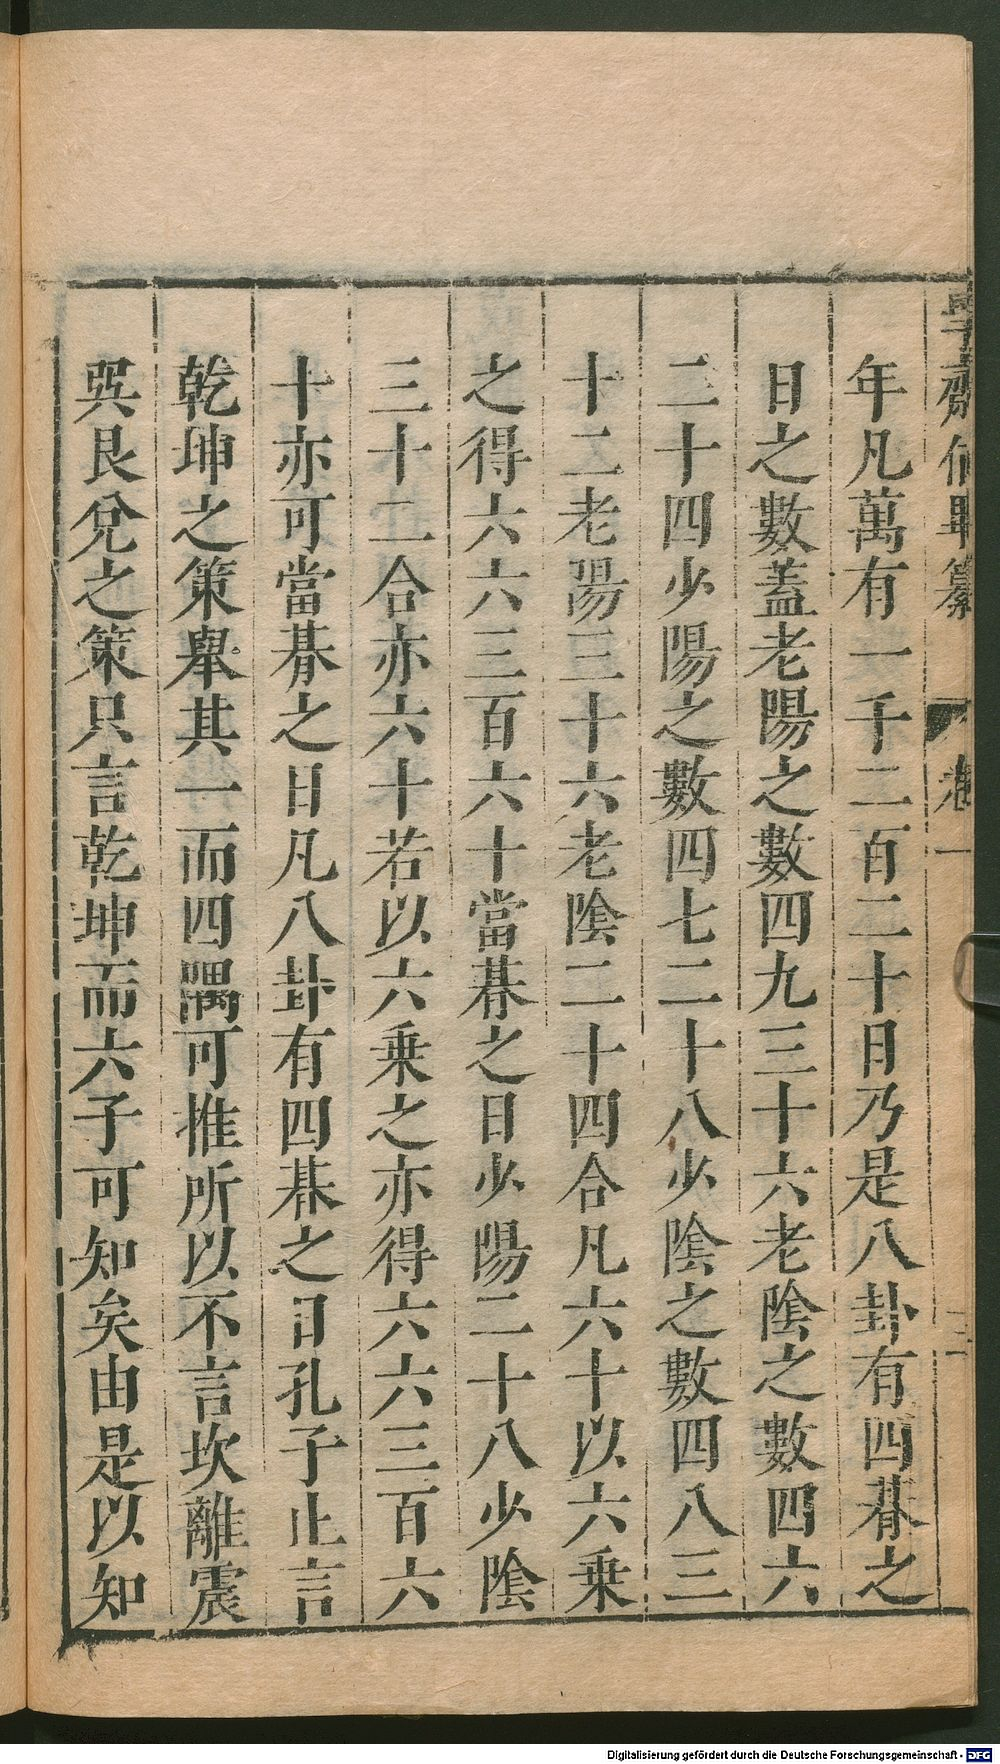 學齋佔畢纂 卷一 三
年凡萬有一千二百二十日乃是八卦有四朞之
日之數蓋老陽之數四九三十六老陰之數四六
二十四少陽之數四七二十八少陰之數四八三
十二老陽三十六老陰二十四合凡六十以六乗
之得六六三百六十當朞之日少陽二十八少陰
三十二合亦六十若以六乗之亦得六六三百六
十亦可當朞之日凡八卦有四朞之日孔子止言
乾坤之策舉其一而四隅可推所以不言坎離震
巽艮兌之策只言乾坤而六子可知矣由是以知
Digitalisierung gefördert durch die Deutsche Forschungsgemeinschaft - DFG